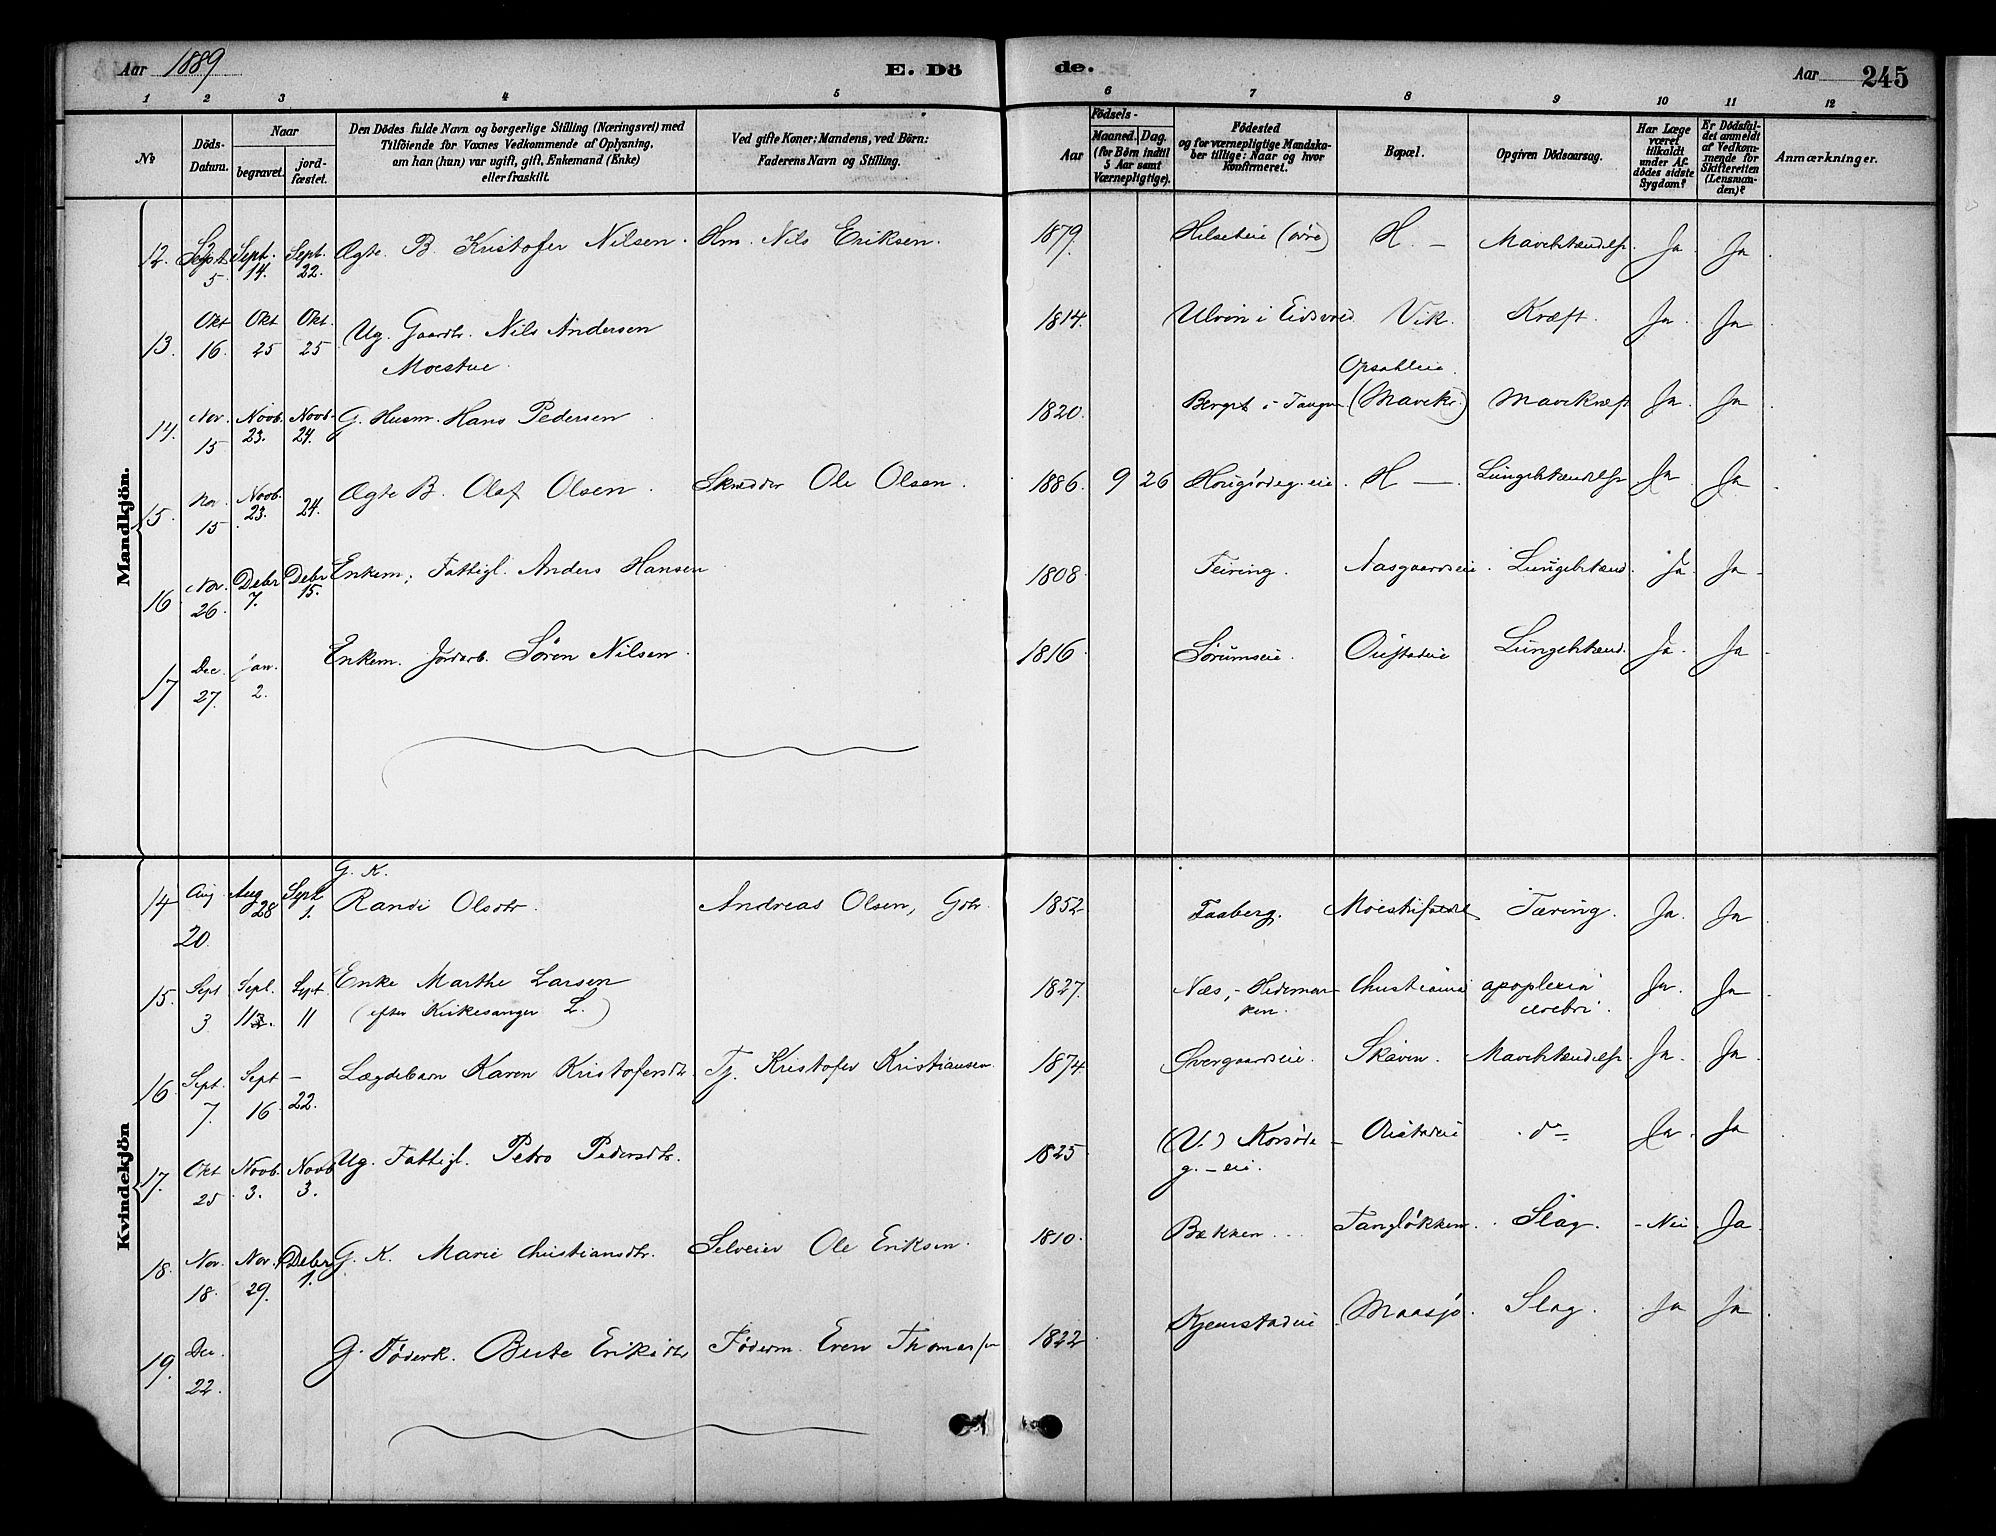 Aar 1889
E. Dö
de.
Aar 245
1 2 3 4 5 6 7 8 9 10 11 12
No
Döds-Datum.
Naar
begravet.
jord-fæstet.
Den Dödes fulde Navn og borgerlige Stilling (Næringsvei) med
Tilföiende for Voxnes Vedkommende af Oplysning,
om han (hun) var ugift, gift, Enkemand (Enke)
eller fraskilt.
Ved gifte Koner: Mandens, ved Börn:
Faderens Navn og Stilling.
Födsels-
Aar
Maaned. Dag.
(for Börn indtil
5 Aar samt
Værnepligtige).
Födested
og for værnepligtige Mandska-
ber tillige: Naar og hvor
konfirmeret.
Bopæl.
Opgiven Dödsaarsag.
Har Læge
været
tilkaldt
under Af-
dödes sidste
Sygdom?
Er Dödsfal-
det anmeldt
af Vedkom-
mende for
Skifteretten
(Lensman-
den)?
Anmærkninger.
Mandkjön.
12. Sept. 5 Sept. 14. Sept. 22. Ægte B. Kristofer Nilsen. Hm. Nils Eriksen. 1879. Hilseteie (øvre) H. – Ja Ja
13. Okt 16. Okt 25 Okt. 25 Ug. Gaardbr. Nils Andersen 1814. i Eidsvold Vik. Kræft. Ja Ja
Moestue.
Opsahleie.
14. Nov. 15 Novb. 23. Novb. 24. G. Husm. Hans Pedersen 1820. Berget i Tangen (Mavekr.) Mavekræft Ja Ja
15. Nov. 15 Novb. 23. 24. Ægte B. Olaf Olsen. Skrædder Ole Olsen. 1886. 9 26 H – Ja Ja
16 Nov. 26 Debr 7. Debr 15. Enkem. Fattigl. Anders Hansen 1808. Feiring. Aasgaardseie Lungebetænd. Ja Ja
17 Dec 27. Jan. 2. Enkem. Jordarb. Søren Nilsen. 1816 Sørumseie. Lungebetænd. Ja Ja
Kvindekjön
G. K.
14 Aug 20. Aug 28 Sept 1. Randi Olsdtr. Andreas Olsen, Gbr. 1852 Faaberg. Tæring. Ja. Ja
15. Sept 3 Sept. 11 Sept. 11 Enke Marthe Larsen 1827. Næs, – Hedemar- Christiania apoplexia Ja. Ja
(efter Kirkesanger L.) ken. cerebri.
16 Sept. 7. Sept 16 – 22. Lægdebarn Karen Kristofersdtr. Tj. Kristofer Kristiansen. 1874. Skaven. Ja. Ja
17. Okt 25 Novb. 3. Novb 3. Ug. Fattigl. Petro Pedersdtr. 1825 (V.) Korsøde do Ja Ja
g. – eie.
18. Nov. 18. Nov. 29. Debr 1. G. K. Marie Christiansdtr. Selveier Ole Eriksen. 1810. Bækken Tangløkken. Slag. Nei Ja.
19. Dec. 22. G. Føderk. Berte Eriksdtr Føderm. Even Thomassen 1822 Kjemstadeie Maasjø. Slag. Ja Ja